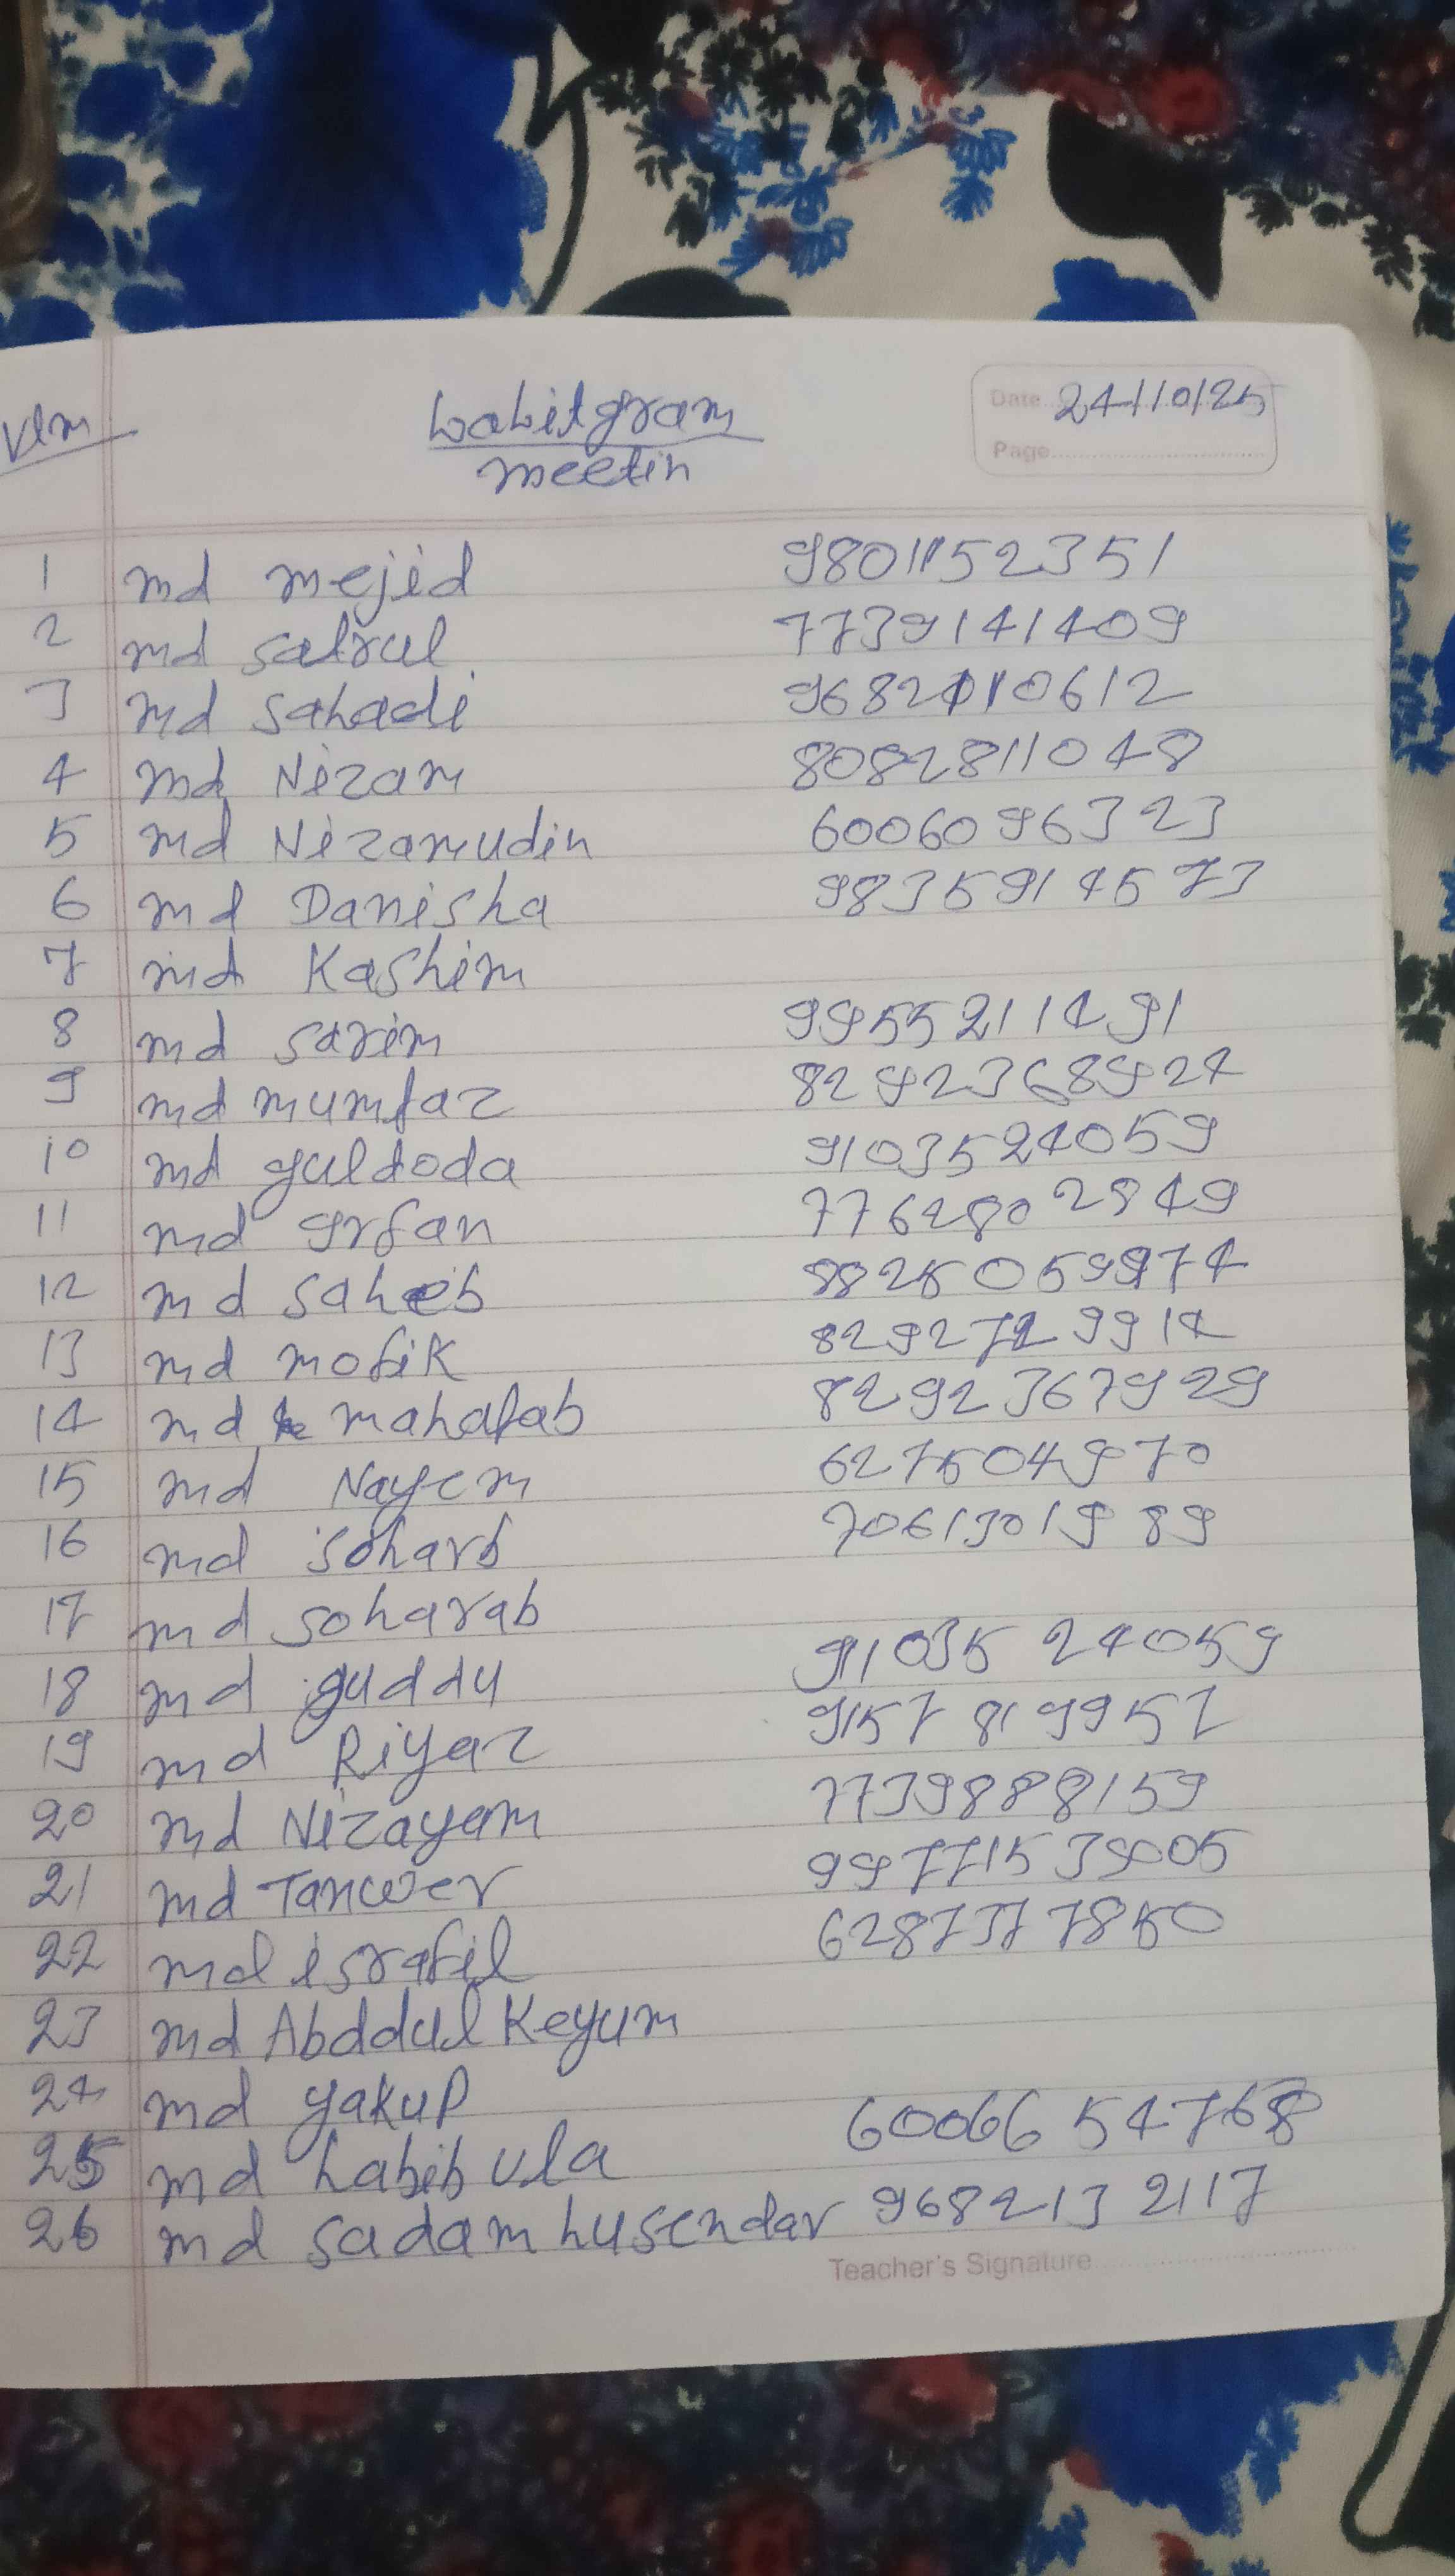 Vlm
Labitgram
meetin
Date 24/10/25
Page
1 md mejid 9801152351
2 md satrul 7739141409
3 md sahadi 9682110612
4 md Nizam 8082811048
5 md Nizamudin 6006096323
6 md Danisha 9835914573
7 md Kashim
8 md sarim 9955211491
9 md mumtaz 8292368924
10 md guldoda 9103524059
11 md Irfan 7762802849
12 md saheb 8825059974
13 md mofik 8292729914
14 md mahatab 8292367929
15 md Nayem 627504970
16 md soharb 7061301989
17 md soharab
18 md guddu 91035 24059
19 md Riyaz 9157819957
20 md Nizayam 7739888159
21 md Tanwer 99771539005
22 md israfil 6287377850
23 md Abddul Keyum
24 md yakup
25 md habib ula 60066 54768
26 md sadam husendar 9682132117
Teacher's Signature